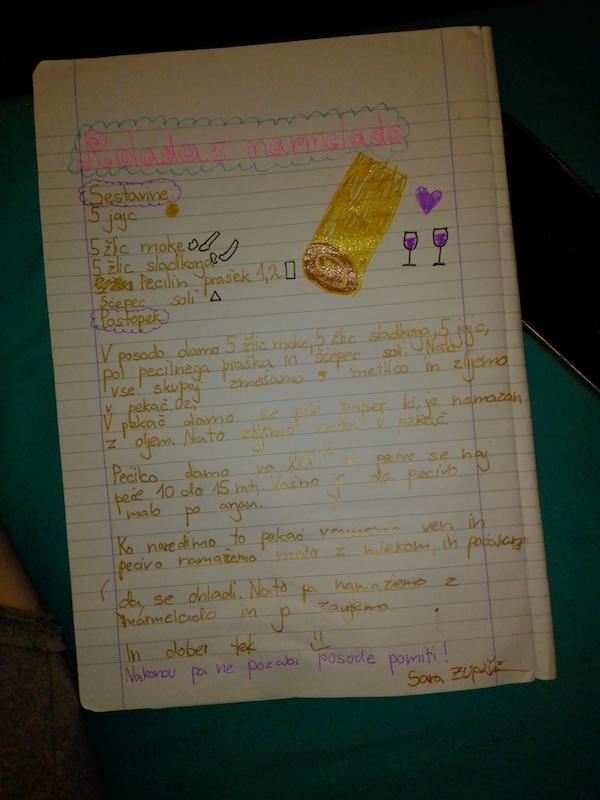 Rolada z marmelado
Sestavine
5 jajc
5 žlic moke
5 žlic sladkorja
Pecilni prašek 1,2
Ščepec soli
Postopek
V posodo damo 5 žlic moke, 5 žlic sladkorja, 5 jajc,
pol pecilnega praška in ščepec soli. Nato
vse skupaj zmešamo s metlico in zlijemo
v pekač.
V pekač damo še peki paper ki je namazan
z oljem. Nato zlijemo v pekač
Pečico damo na in pecivo se naj
peče 10 do 15 min. Važno je da pecivo
malo po
Ko naredimo to pekač vzamemo ven in
pecivo namažemo malo z mlekom, in počakamo
da se ohladi. Nato pa namažemo z
marmelado in zavijemo.
In dober tek
Nakoncu pa ne pozabi posode pomiti!
Sara